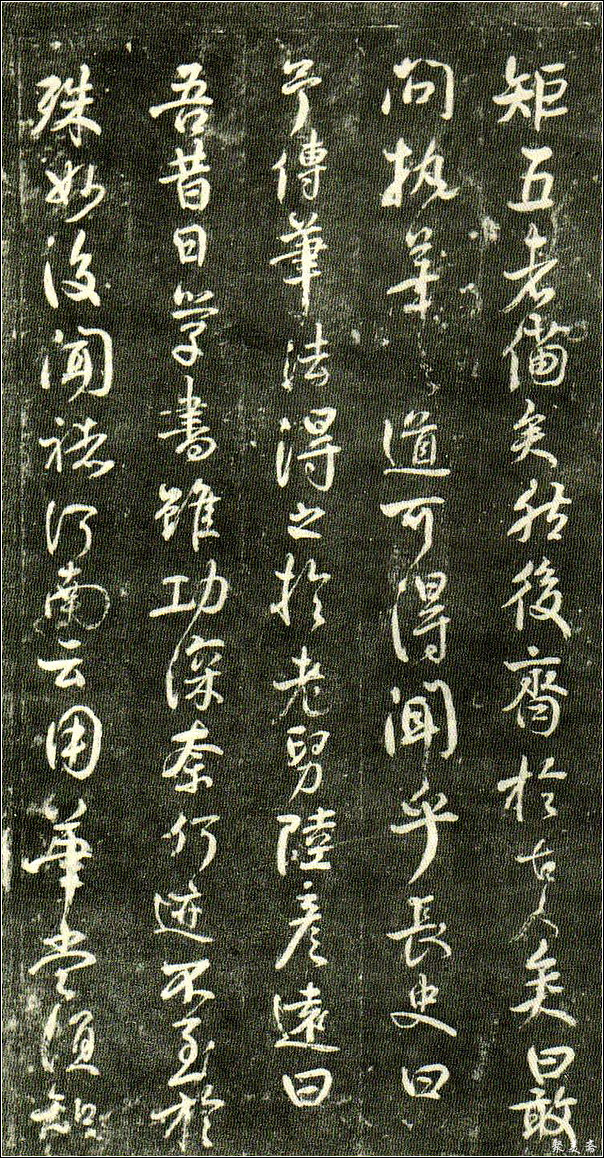 矩五者備矣然後齊於古人矣曰敢
問執筆之道可得聞乎長史曰
予傳筆法得之於老舅陸彦遠曰
吾昔日學書雖功深奈何迹不至於
殊妙後聞褚河南云用筆當須知